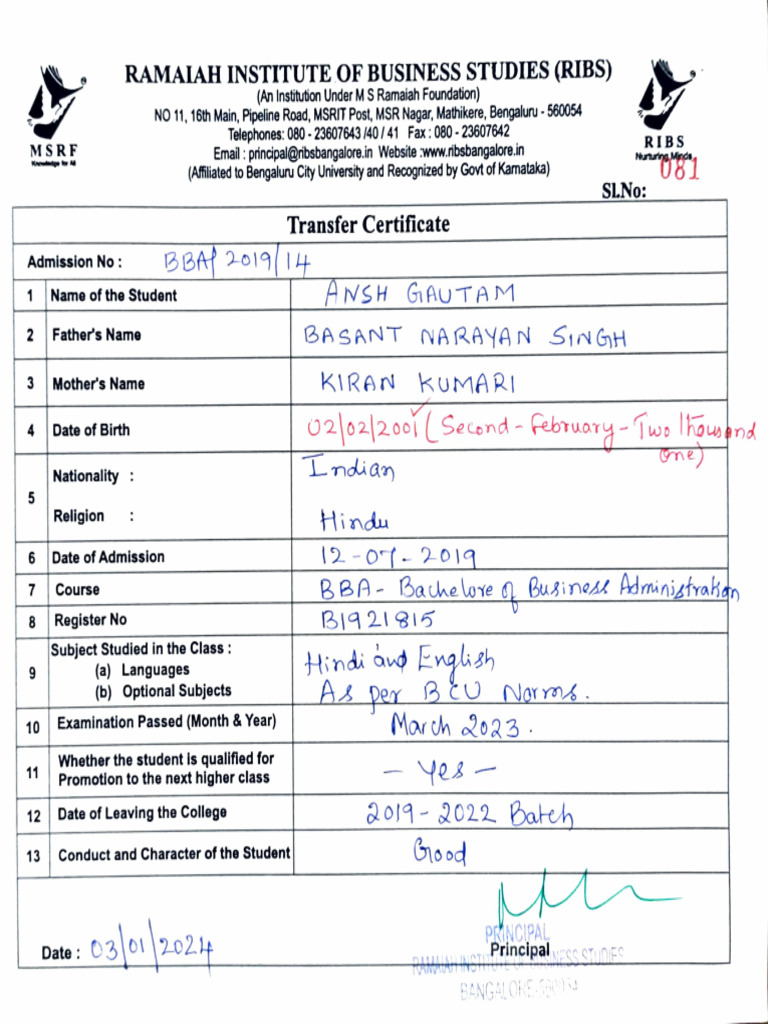 RAMAIAH INSTITUTE OF BUSINESS STUDIES (RIBS)
(An Institution Under M S Ramaiah Foundation)
NO 11, 16th Main, Pipeline Road, MSRIT Post, MSR Nagar, Mathikere, Bengaluru - 560054
Telephones: 080 - 23607643 /40 / 41 Fax : 080 - 23607642
Email : principal@ribsbangalore.in Website :www.ribsbangalore.in
(Affiliated to Bengaluru City University and Recognized by Govt of Karnataka)
MSRF
Knowledge for All
RIBS
Nurturing Minds
Sl.No: 081
Transfer Certificate
Admission No : BBA/2019/14
1 Name of the Student ANSH GAUTAM
2 Father's Name BASANT NARAYAN SINGH
3 Mother's Name KIRAN KUMARI
4 Date of Birth 02/02/2001 (Second - February - Two Thousand
One)
5 Nationality : Indian
Religion : Hindu
6 Date of Admission 12-07-2019
7 Course BBA - Bachelore of Business Administration
8 Register No B1921815
9 Subject Studied in the Class :
(a) Languages Hindi and English
(b) Optional Subjects As per BCU Norms.
10 Examination Passed (Month & Year) March 2023.
11 Whether the student is qualified for
Promotion to the next higher class - Yes -
12 Date of Leaving the College 2019 - 2022 Batch
13 Conduct and Character of the Student Good
Date : 03/01/2024
PRINCIPAL
Principal
RAMAIAH INSTITUTE OF BUSINESS STUDIES
BANGALORE-560054